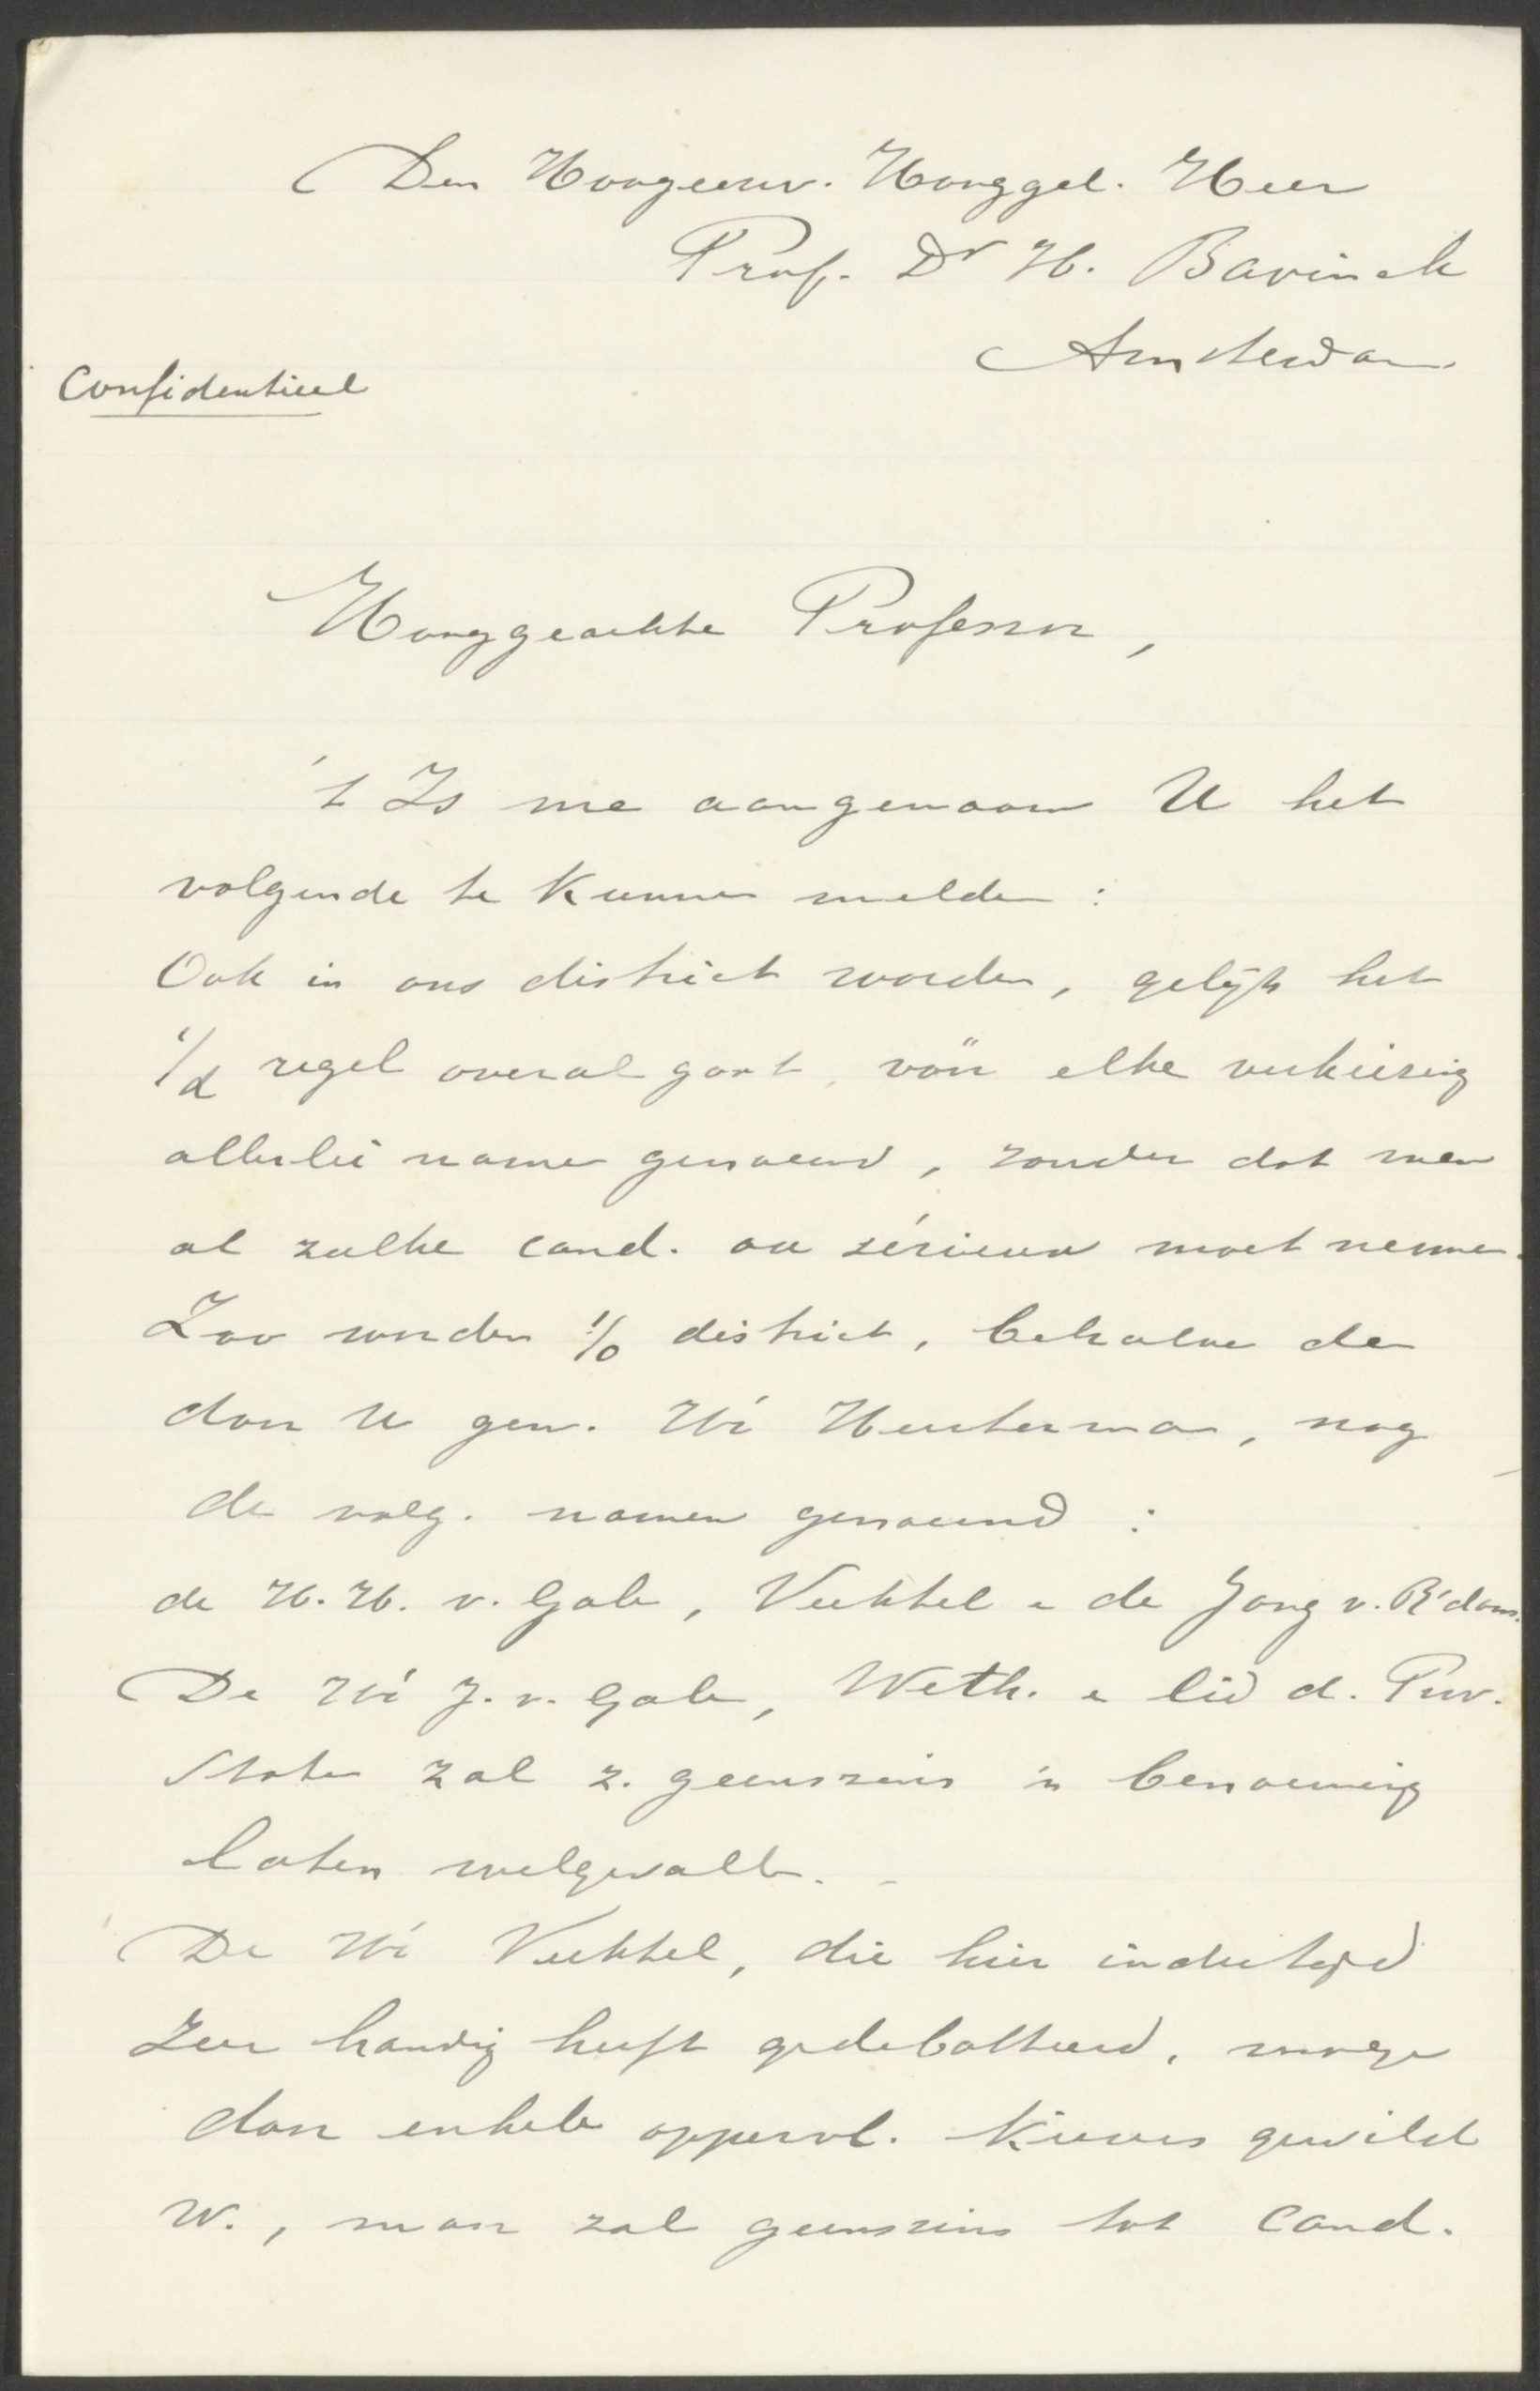 Den Hoogeerw. Hooggel. Heer
Prof. Dr H. Bavinck
Amsterdam
Confidentieel
Hooggeachte Professor,
't Is me aangenaam U het
volgende te kunnen melden :
Ook in ons district worden, gelijk het
i/d regel overal gaat, vóór elke verkiezing
allerlei namen genoemd, zonder dat men
al zulke cand. au sérieux moet nemen.
Zoo worden i/o district, behalve de
door U gen. Hr Heuterman, nog
de volg. namen genoemd :
de H.H. v. Gale, Vechtel e de Jong v. R'dam.
De Hr J. v. Gale, Weth. e lid d. Prov.
Staten zal z. geenszins 'n benoeming
laten welgevallen.
De Hr Vechtel, die hier indertijd
zeer handig heeft gedebatteerd, moge
door enkele oppervl. kiezers gewild
w., maar zal geenszins tot cand.